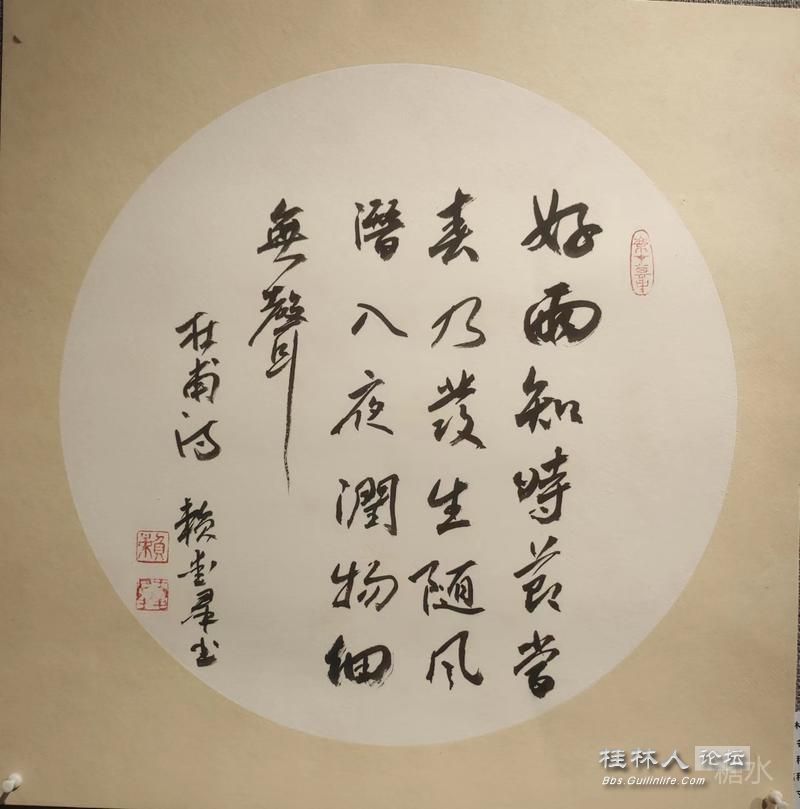 好雨知時節當
春乃發生随風
潛入夜潤物细
無聲
杜甫诗 赖
書
賴
桂林人论坛
Bbs.Guilinlife.Com
糖水